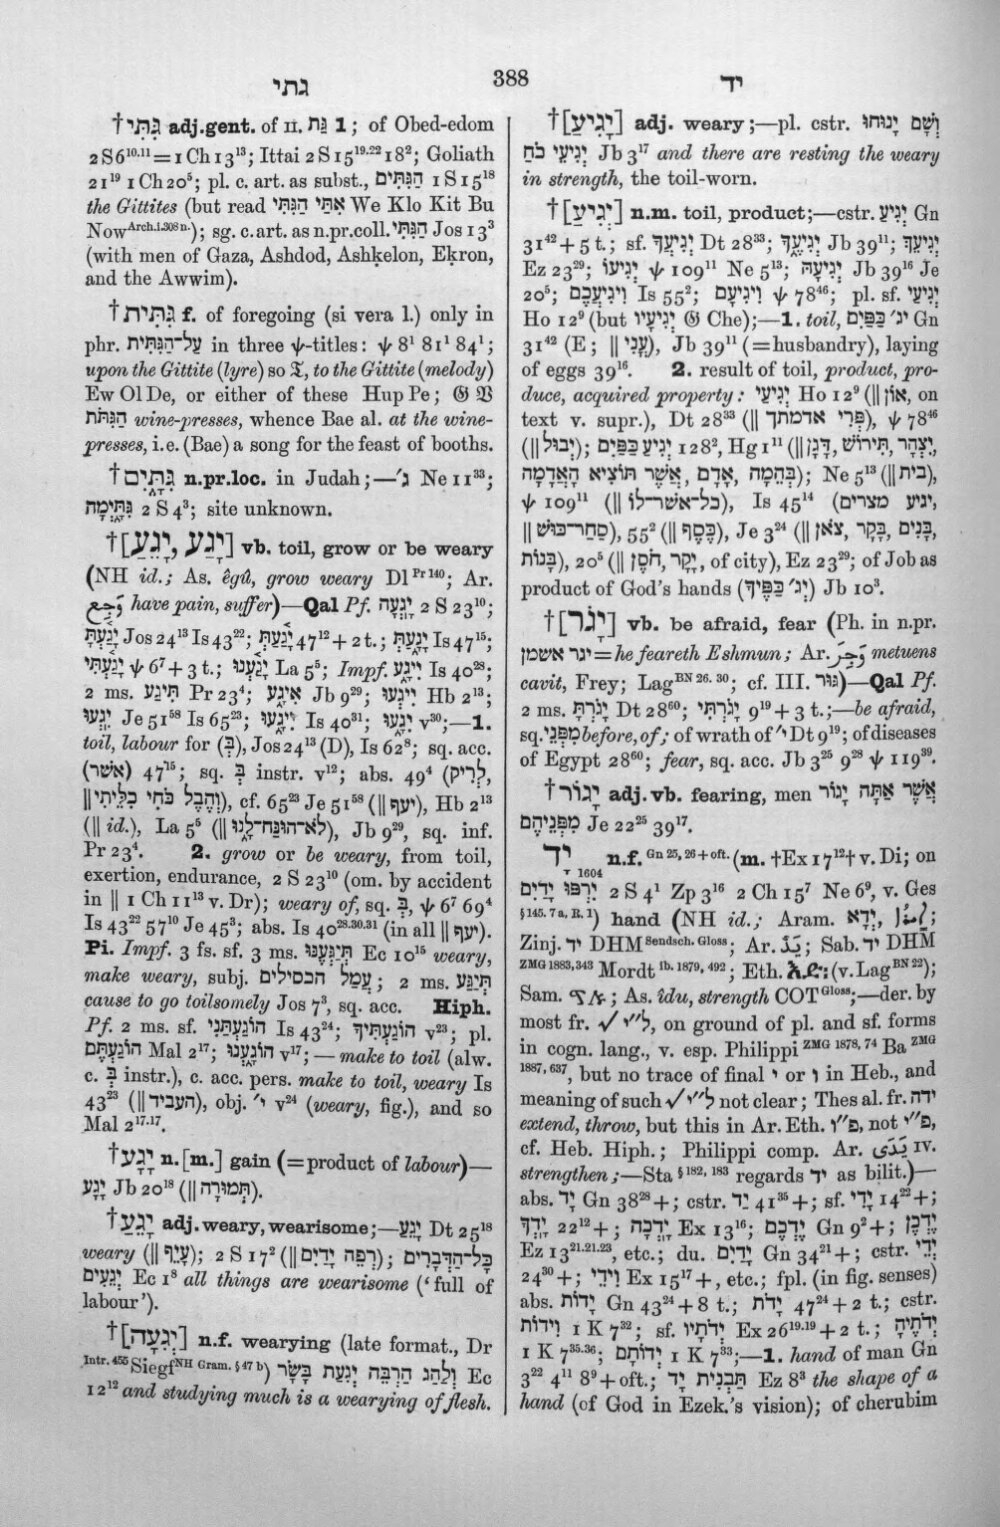 גתי
388
יד
†גִּתִּי adj.gent. of II. גַּת 1; of Obed-edom
2 S 6¹⁰·¹¹ = 1 Ch 13¹³; Ittai 2 S 15¹⁹·²² 18²; Goliath
21¹⁹ 1 Ch 20⁵; pl. c. art. as subst., הַגִּתִּים 1 S 15¹⁸
the Gittites (but read אִתַּי הַגִּתִּי We Klo Kit Bu
Now Arch.i.308 n.); sg. c. art. as n.pr.coll. הַגִּתִּי Jos 13³
(with men of Gaza, Ashdod, Ashḳelon, Eḳron,
and the Awwim).
†גִּתִּית f. of foregoing (si vera l.) only in
phr. עַל־הַגִּתִּית in three ψ-titles: ψ 8¹ 81¹ 84¹;
upon the Gittite (lyre) so 𝔗, to the Gittite (melody)
Ew Ol De, or either of these Hup Pe; 𝔊 𝔙
הַגִּתֹּת wine-presses, whence Bae al. at the wine-
presses, i.e. (Bae) a song for the feast of booths.
†גִּתַּיִם n.pr.loc. in Judah;—ג׳ Ne 11³³;
גִּתָּיְמָה 2 S 4³; site unknown.
†[יָגַע, יָגֵעַ] vb. toil, grow or be weary
(NH id.; As. êgû, grow weary Dl Pr 140; Ar.
وَجِعَ have pain, suffer)—Qal Pf. יָגְעָה 2 S 23¹⁰;
יָגַעְתָּ Jos 24¹³ Is 43²²; יָגַעַתְּ 47¹² + 2 t.; יָגָעַתְּ Is 47¹⁵;
יָגַעְתִּי ψ 6⁷ + 3 t.; יָגַעְנוּ La 5⁵; Impf. יִיגָע Is 40²⁸;
2 ms. תִּיגַע Pr 23⁴; אִיגָע Jb 9²⁹; יִיגְעוּ Hb 2¹³;
יִגְעוּ Je 51⁵⁸ Is 65²³; יִיגָעוּ Is 40³¹; יִגָעוּ v³⁰;—1.
toil, labour for (בְּ), Jos 24¹³ (D), Is 62⁸; sq. acc.
(אשׁר) 47¹⁵; sq. בְּ instr. v¹²; abs. 49⁴ (לְרִיק,
‖ וְהֶבֶל כֹּחִי כִלֵּיתִי), cf. 65²³ Je 51⁵⁸ (‖ יעף), Hb 2¹³
(‖ id.), La 5⁵ (‖ לֹא־הוּנַח־לָנוּ), Jb 9²⁹, sq. inf.
Pr 23⁴. 2. grow or be weary, from toil,
exertion, endurance, 2 S 23¹⁰ (om. by accident
in ‖ 1 Ch 11¹³ v. Dr); weary of, sq. בְּ, ψ 6⁷ 69⁴
Is 43²² 57¹⁰ Je 45³; abs. Is 40²⁸·³⁰·³¹ (in all ‖ יעף).
Pi. Impf. 3 fs. sf. 3 ms. תְּיַגְּעֶנּוּ Ec 10¹⁵ weary,
make weary, subj. עֲמַל הכסילים; 2 ms. תְּיַגַּע
cause to go toilsomely Jos 7³, sq. acc. Hiph.
Pf. 2 ms. sf. הוֹגַעְתַּנִי Is 43²⁴; הוֹגַעְתִּיךָ v²³; pl.
הוֹגַעְתֶּם Mal 2¹⁷; הוֹגָעְנוּ v¹⁷;—make to toil (alw.
c. בְּ instr.), c. acc. pers. make to toil, weary Is
43²³ (‖ העביד), obj. י׳ v²⁴ (weary, fig.), and so
Mal 2¹⁷·¹⁷.
†יָגָע n.[m.] gain (=product of labour)—
יָגָע Jb 20¹⁸ (‖ תְּמוּרָה).
†יָגֵעַ adj. weary, wearisome;—יָגֵעַ Dt 25¹⁸
weary (‖ עָיֵף); 2 S 17² (‖ רְפֵה יָדַיִם); כָּל־הַדְּבָרִים
יְגֵעִים Ec 1⁸ all things are wearisome (‘full of
labour’).
†[יְגִעָה] n.f. wearying (late format., Dr
Intr. 455 Siegf NH Gram. § 47 b) וְלַהַג הַרְבֵּה יְגִעַת בָּשָׂר Ec
12¹² and studying much is a wearying of flesh.
†[יָגִיעַ] adj. weary;—pl. cstr. וְשָׁם יָנוּחוּ
יְגִיעֵי כֹחַ Jb 3¹⁷ and there are resting the weary
in strength, the toil-worn.
†[יְגִיעַ] n.m. toil, product;—cstr. יְגִיעַ Gn
31⁴² + 5 t.; sf. יְגִיעֲךָ Dt 28³³; יְגִיעֶךָ Jb 39¹¹; יְגִיעֵךְ
Ez 23²⁹; יְגִיעוֹ ψ 109¹¹ Ne 5¹³; יְגִיעָהּ Jb 39¹⁶ Je
20⁵; וִיגִיעֲכֶם Is 55²; וִיגִיעָם ψ 78⁴⁶; pl. sf. יְגִיעַי
Ho 12⁹ (but יְגִיעָיו 𝔊 Che);—1. toil, יג׳ כַּפַּיִם Gn
31⁴² (E; ‖ עֳנִי), Jb 39¹¹ (=husbandry), laying
of eggs 39¹⁶. 2. result of toil, product, pro-
duce, acquired property: יְגִיעַי Ho 12⁹ (‖ אוֹן, on
text v. supr.), Dt 28³³ (‖ פְּרִי אדמתך), ψ 78⁴⁶
(‖ יְבוּל); יְגִיעַ כַּפַּיִם 128², Hg 1¹¹ (‖ דָּגָן, תִּירוֹשׁ, יִצְהָר,
בְּהֵמָה, אָדָם, אֲשֶׁר תּוֹצִיא הָאֲדָמָה); Ne 5¹³ (‖ בית),
ψ 109¹¹ (‖ כל־אשׁר־לו), Is 45¹⁴ (יגיע מצרים,
‖ סְחַר־כּוּשׁ), 55² (‖ כֶּסֶף), Je 3²⁴ (‖ צֹאן, בָּקָר, בָּנִים,
בָּנוֹת), 20⁵ (‖ חֹסֶן, יְקָר, of city), Ez 23²⁹; of Job as
product of God’s hands (יְג׳ כַּפֶּיךָ) Jb 10³.
†[יָגֹר] vb. be afraid, fear (Ph. in n.pr.
יגר אשמן = he feareth Eshmun; Ar. وَجِرَ metuens
cavit, Frey; Lag BN 26. 30; cf. III. גּוּר)—Qal Pf.
2 ms. יָגֹרְתָּ Dt 28⁶⁰; יָגֹרְתִּי 9¹⁹ + 3 t.;—be afraid,
sq. מִפְּנֵי before, of; of wrath of י׳ Dt 9¹⁹; of diseases
of Egypt 28⁶⁰; fear, sq. acc. Jb 3²⁵ 9²⁸ ψ 119³⁹.
†יָגוֹר adj.vb. fearing, אֲשֶׁר אַתָּה יָגוֹר men
מִפְּנֵיהֶם Je 22²⁵ 39¹⁷.
יָד n.f. Gn 25, 26 + oft. (m. †Ex 17¹²† v. Di; on
1604
יִרְפּוּ יָדַיִם 2 S 4¹ Zp 3¹⁶ 2 Ch 15⁷ Ne 6⁹, v. Ges
§ 145. 7 a, R. 1) hand (NH id.; Aram. יְדָא, ܐܝܕܐ;
Zinj. יד DHM Sendsch. Gloss; Ar. يَدٌ; Sab. יד DHM
ZMG 1883, 343 Mordt ib. 1879, 492; Eth. እድ፡ (v. Lag BN 22);
Sam. ࠀࠃ; As. îdu, strength COT Gloss;—der. by
most fr. √ ל״י, on ground of pl. and sf. forms
in cogn. lang., v. esp. Philippi ZMG 1878, 74 Ba ZMG
1887, 637, but no trace of final י or ו in Heb., and
meaning of such √ ל״י not clear; Thes al. fr. ידה
extend, throw, but this in Ar. Eth. פ״ו, not פ״י,
cf. Heb. Hiph.; Philippi comp. Ar. يَدَى IV.
strengthen;—Sta § 182, 183 regards יד as bilit.)—
abs. יָד Gn 38²⁸ +; cstr. יַד 41³⁵ +; sf. יָדִי 14²² +;
יָדְךָ 22¹² +; יָדְכָה Ex 13¹⁶; יֶדְכֶם Gn 9² +; יֶדְכֶן
Ez 13²¹·²¹·²³, etc.; du. יָדַיִם Gn 34²¹ +; cstr. יְדֵי
24³⁰ +; וִידֵי Ex 15¹⁷ +, etc.; fpl. (in fig. senses)
abs. יָדוֹת Gn 43²⁴ + 8 t.; יָדֹת 47²⁴ + 2 t.; cstr.
וִידוֹת 1 K 7³²; sf. יְדֹתָיו Ex 26¹⁹·¹⁹ + 2 t.; יְדֹתֶיהָ
1 K 7³⁵·³⁶; יְדוֹתָם 1 K 7³³;—1. hand of man Gn
3²² 4¹¹ 8⁹ + oft.; תַּבְנִית יָד Ez 8³ the shape of a
hand (of God in Ezek.’s vision); of cherubim